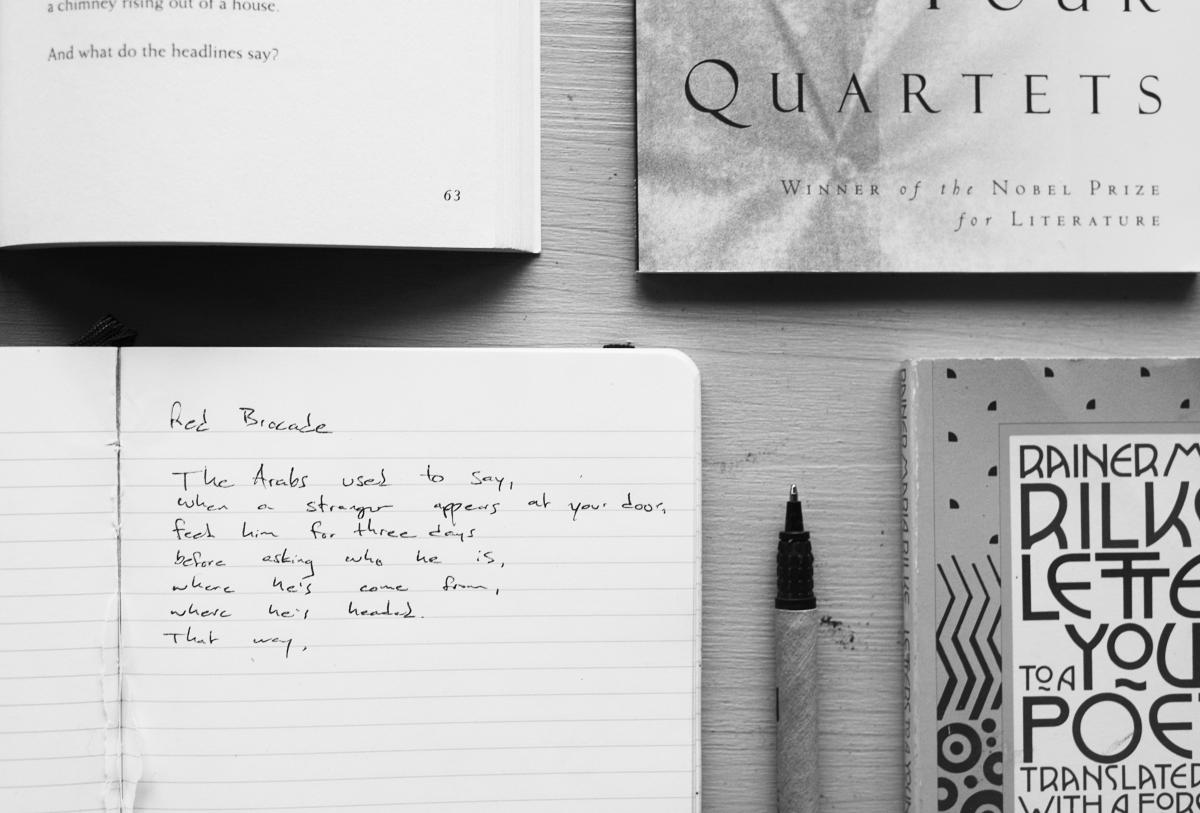 a chimney rising out of a house.
And what do the headlines say?
63
FOUR
QUARTETS
WINNER of the NOBEL PRIZE
for LITERATURE
Red Brocade
The Arabs used to say,
when a stranger appears at your door,
feed him for three days
before asking who he is,
where he's come from,
where he's headed.
That way,
RAINER M
RILK
LETTE
TO A YOU
POE
TRANSLATED
WITH A FOR